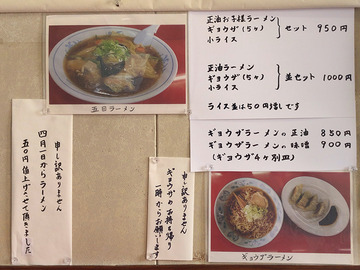 正油お子様ラーメン
ギョウザ(5ヶ)
小ライス
セット 950円
正油ラーメン
ギョウザ(5ヶ)
小ライス
並セット 1000円
ライス並は50円増しです
ギョウザラーメンの正油 850
ギョウザラーメンの味噌 900
(ギョウザ4ヶ別皿)
五目ラーメン
ギョウザラーメン
申し訳ありません
ギョウザのお持ち帰り
一時からお願いします
申し訳ありません
四月一日からラーメン
五〇円値上げさせて頂きました